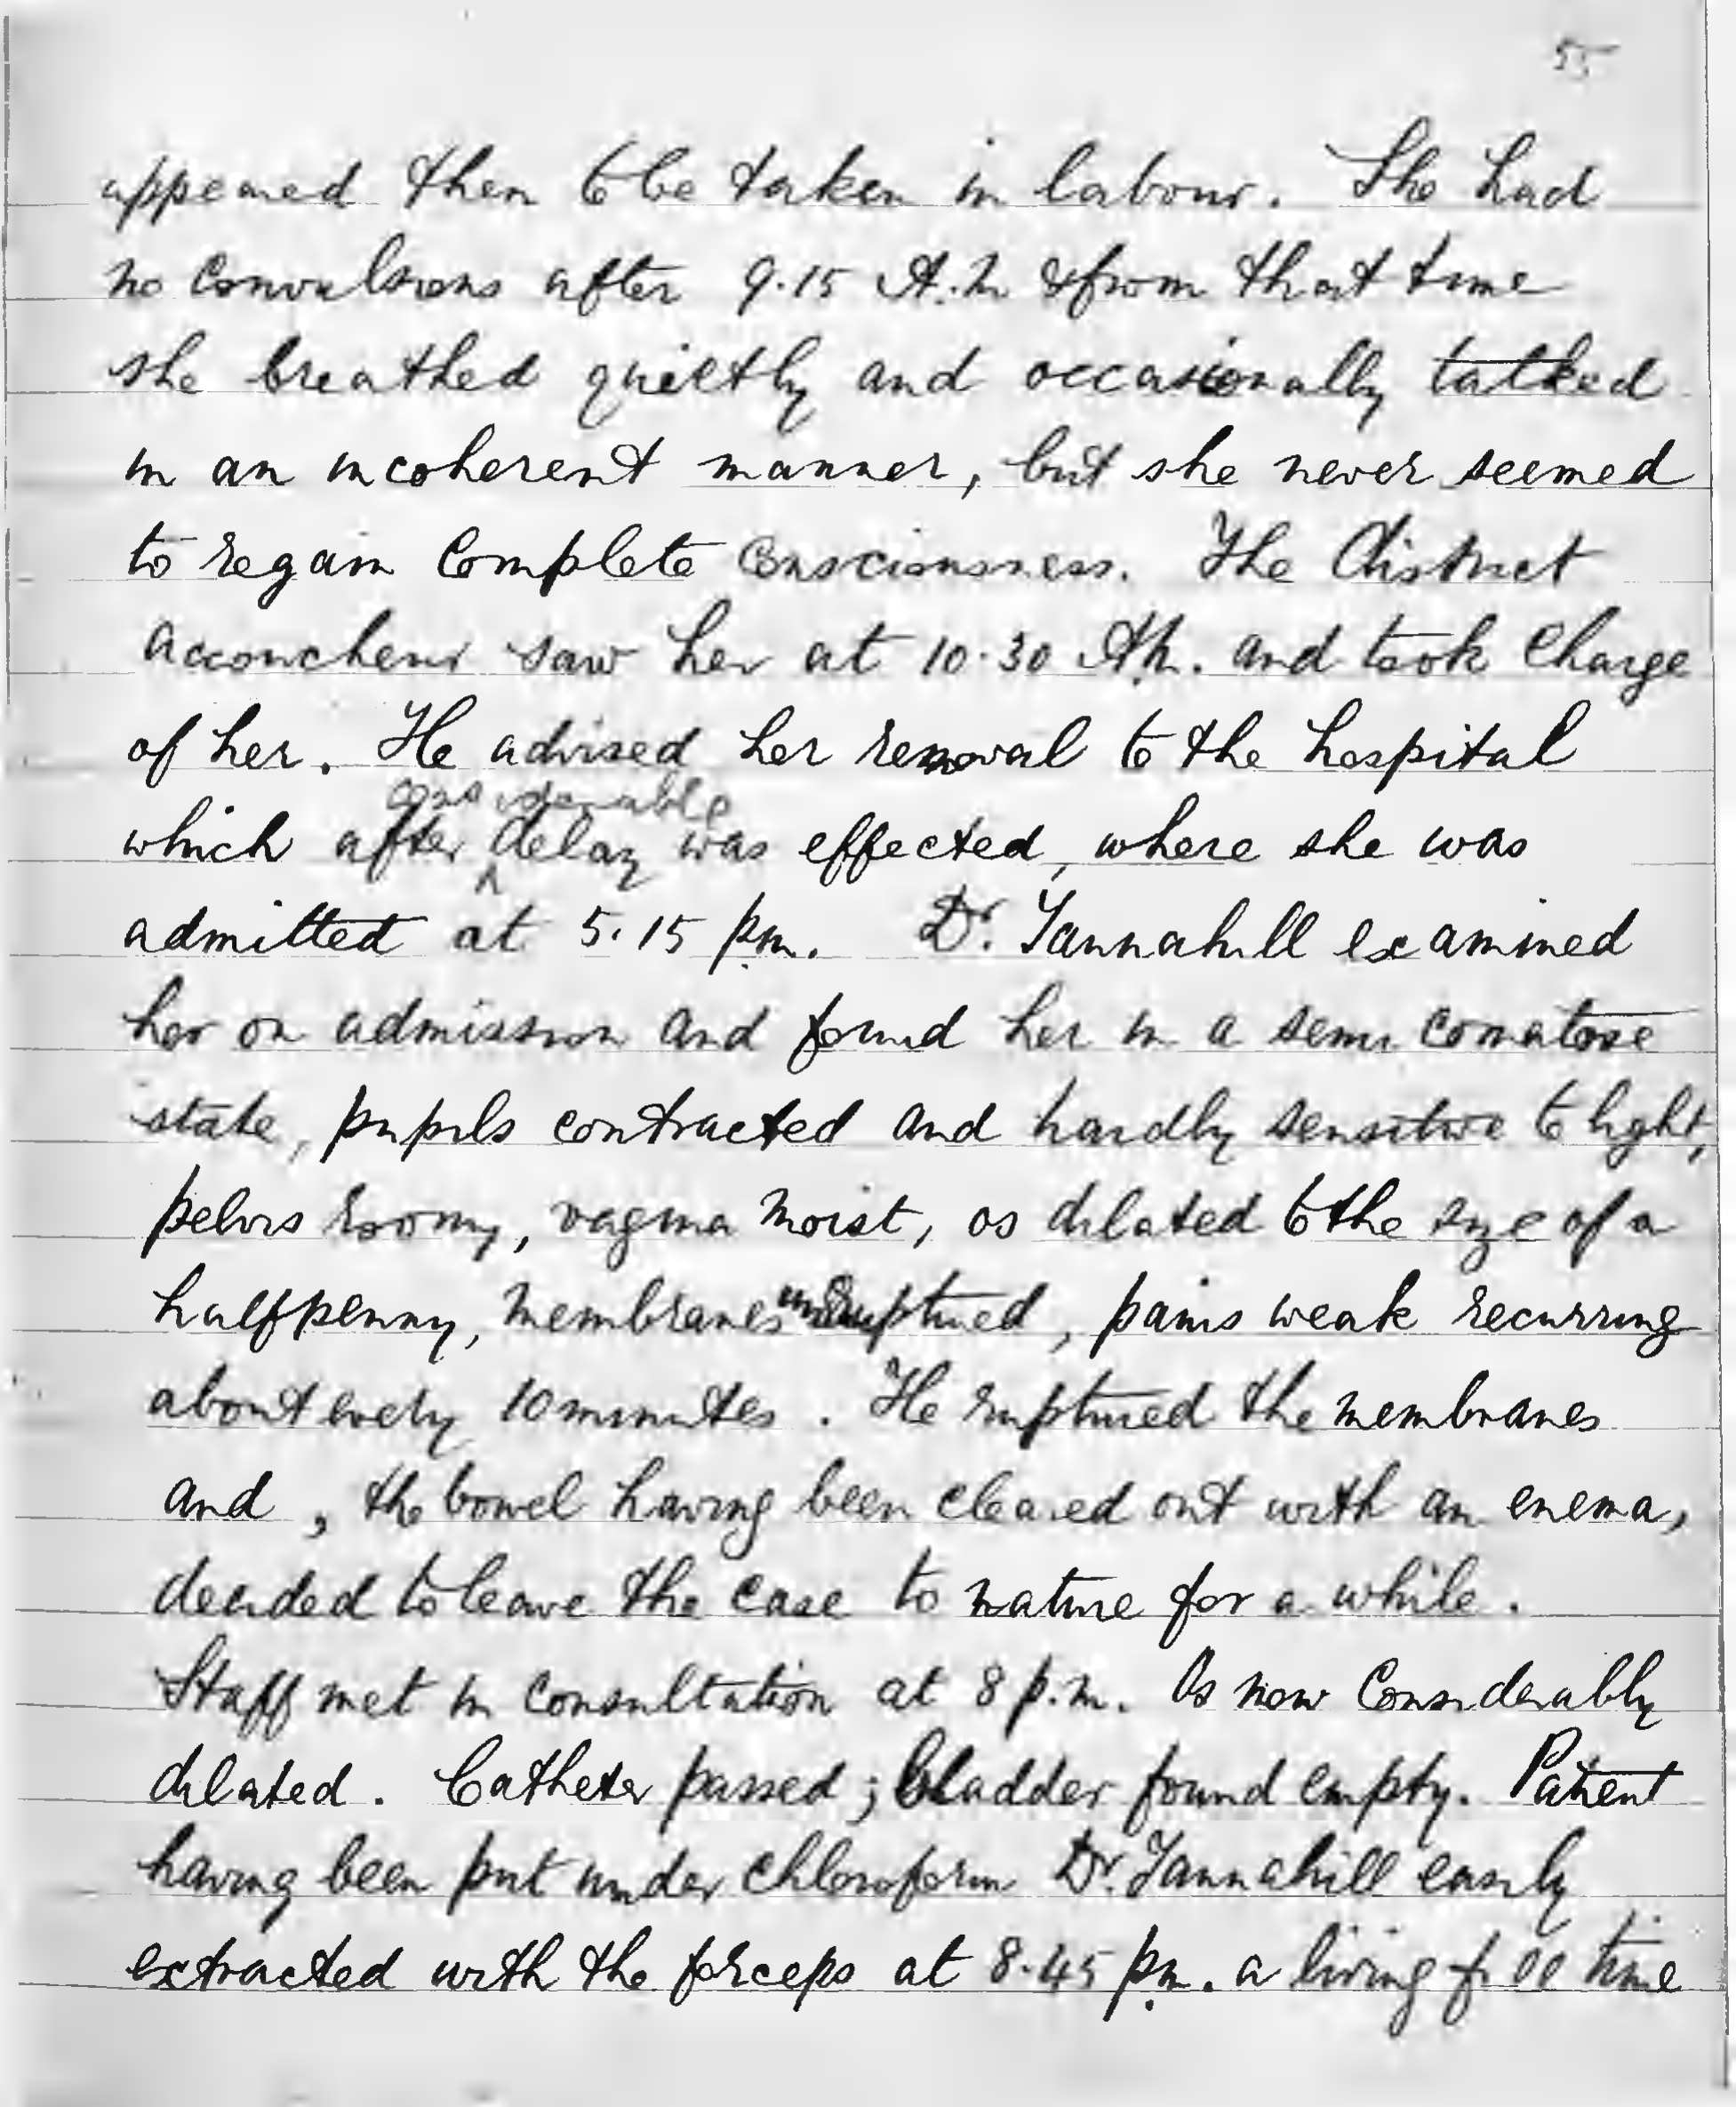 55
appeared then to be taken in labour. She had
no convulsions after 9.15 A.M & from that time
she breathed quietly and occasionally talked
in an incoherent manner, but she never seemed
to regain complete consciousness. The District
accoucheur saw her at 10.30 AM. and took charge
of her. He advised her removal to the hospital
considerable
which after ^ delay was effected, where she was
admitted at 5.15 pm. Dr. Tannahill examined
her on admission and found her in a semi comatose
state, pupils contracted and hardly sensitive to light,
pelvis roomy, vagina moist, os dilated to the size of a
halfpenny, membranes unruptured, pains weak recurring
about every 10 minutes. He ruptured the membranes
and, the bowel having been cleared out with an enema,
decided to leave the case to nature for a while.
Staff met in consultation at 8 p.m. Os now considerably
dilated. Catheter passed; bladder found empty. Patient
having been put under chloroform Dr. Tannahill easily
extracted with the forceps at 8.45 pm. a living full time